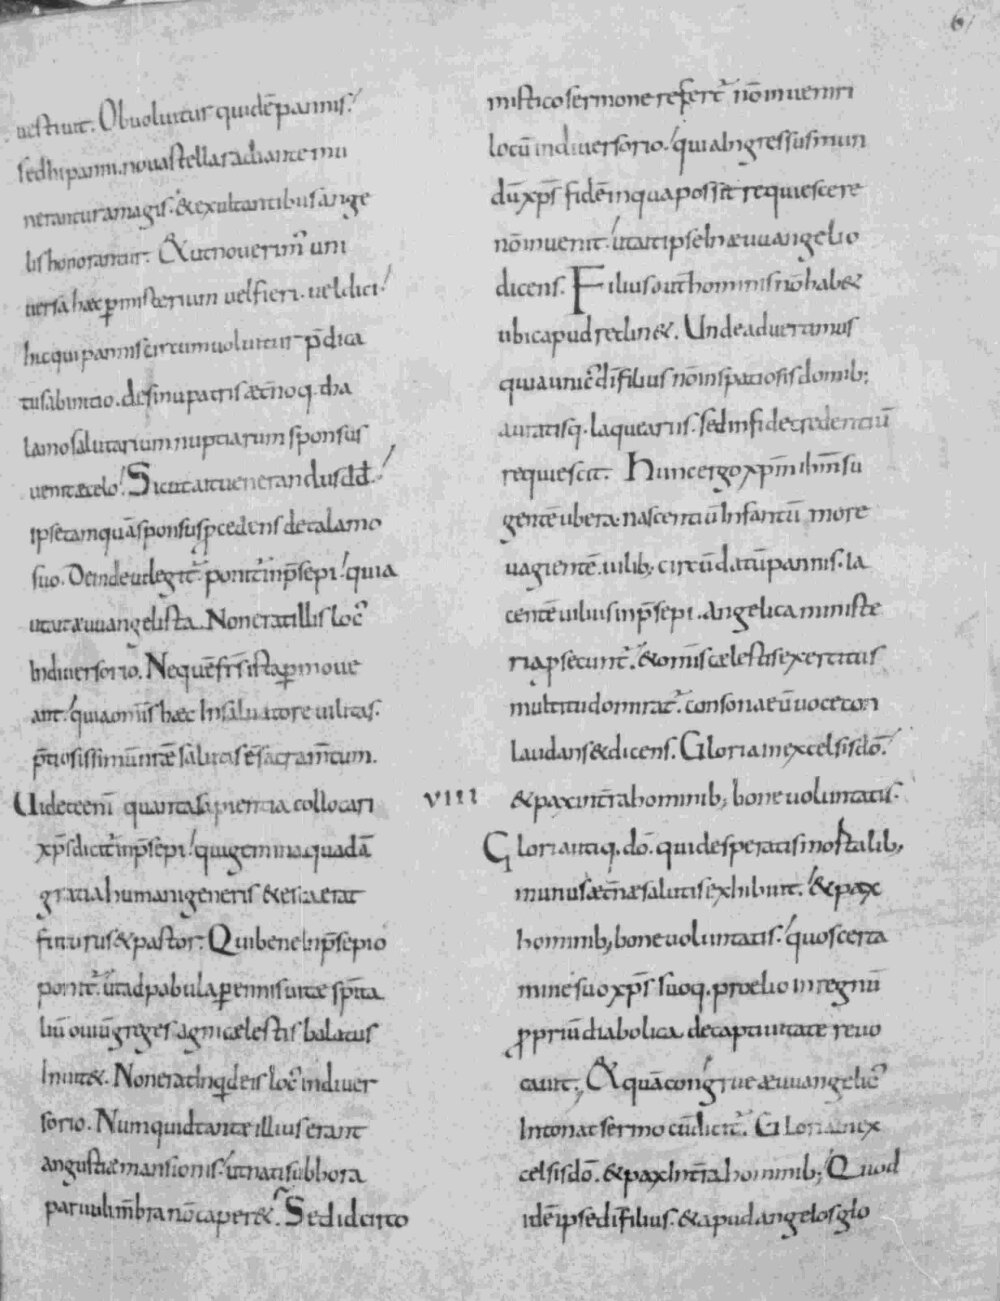 6
uestiuit. Obuoluitur quidē pannis.
sed hi panni. noua stella radiante mu
nerantur a magis. & exultantibus ange
lis honorantur. & ut nouerim̄ uni
uersa hæc p̄ misterium uel fieri. uel dici.
hic qui pannis circumuoluitur p̄dica
tus ab initio. de sinu patris æt̄noq. tha
lamo salutarium nuptiarum sponsus
uenit æ celo. Sicut ait uenerandus dd̄.
ipse tamquā sponsus p̄cedens de talamo
suo. Deinde ut legit̄. ponit̄ in p̄sepi. quia
ut ait æuuangelista. Non erat illis loc̄
In diuersorio. Neque fr̄s ista p̄moue
ant. quia om̄is hæc In saluatore uilitas.
p̄tiosissimū nr̄æ salutis ē sacram̄tum.
Uidete eni quanta sapientia collocari
xp̄s dicit̄ in p̄sepi. qui gemina quadā
gratia humani generis & esca erat
futurus & pastor. Qui bene In p̄sepio
ponit̄. ut ad pabula p̄ennis uitæ sp̄ita
liū ouiū greges agni cælestis balatus
Inuit&. Non erat Inq̄d eis loc̄ in diuer
sorio. Numquid tantæ illius erant
angustiæ mansionis. ut nati sub hora
paruuli m̄bra nō caper&. Sed id circo
mistico sermone refert̄ nō inueniri
locū in diuersorio. quia ingressus mun
dū xp̄s fidē in qua possit requiescere
nō inuenit. ut ait ipse In æuuangelio
dicens. Filius aut̄ hominis nō hab&
ubi caput reclin&. Unde aduertimus
quia unic̄ dī filius nō in spatiosis domib;
auratisq. laquearus. sed in fide credentiū
requiescit. Hunc ergo xp̄m ih̄m su
gentē ubera. nascentiū Infantū more
uagientē. uilib; circūdatū pannis. Ia
centē uilius in p̄sepi. Angelica ministe
ria p̄secunt̄. & om̄is cælestis exercitus
multitudo mirat̄. consona eū uoce con
laudans & dicens. Gloria in excelsis dō.
VIII & pax in t̄ra hominib; bone uoluntatis.
Gloria utiq. dō. qui desperatis mortalib;
munus æt̄næ salutis exhibuit. & pax
hominib; bone uoluntatis. quos certa
mine suo xp̄s suoq. proelio in regnū
p̄priū diabolica de captiuitate reuo
cauit. & quā congrue æuuangelic̄
Intonat sermo cū dicit̄. Gloria In ex
celsis dō. & pax In t̄ra hominib; Quod
idē ipse dī filius. & apud angelos glo